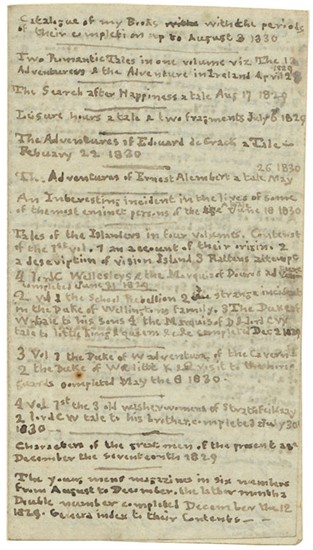 Catalogue of my Books with the periods
of their completion up to August 3 1830
Two Romantic Tales in one volume viz The 12
Adventurers & the Adventure in Ireland April 28 1829
The Search after Happiness a tale Aug 17 1829
Leisure hours a tale & two fragments July 6 1829
The Adventures of Edward de Crack a Tale
Febuary 22 1830
26 1830
The Adventures of Ernest Alembert a tale May
An Interesting incident in the lives of some
of the most eminent persons of the Age June 18 1830
Tales of the Islanders in four volumes. Contents
of the 1st vol. 1 an account of their origin 2
a description of vision Island 3 Rattens attempt
4 lord C Wellesleys & the Marquis of Douros ad
completed June 31 1829
2 vol 1 the School Rebellion 2 strange incident
in the Duke of Wellingtons family. 3 The Duke of
W tale to his sons 4 the Marquis of D & lord C W
tale to little King & queens completed Dec 2 1829
3 Vol 1 the Duke of W adventure in the Cavern
2 the Duke of W & little K visit to the horse
guards completed May the 8 1830
4 Vol 1st the 3 old washerwomens of Strathfieldsay
2 lord C W tale to his brother, completed July 30
1830
Characters of the great men of the present age
December the seventeenth 1829
The young mens magazine in six numbers
from August to December, the latter months
Double number completed December the 12
1829. General index to their Contents